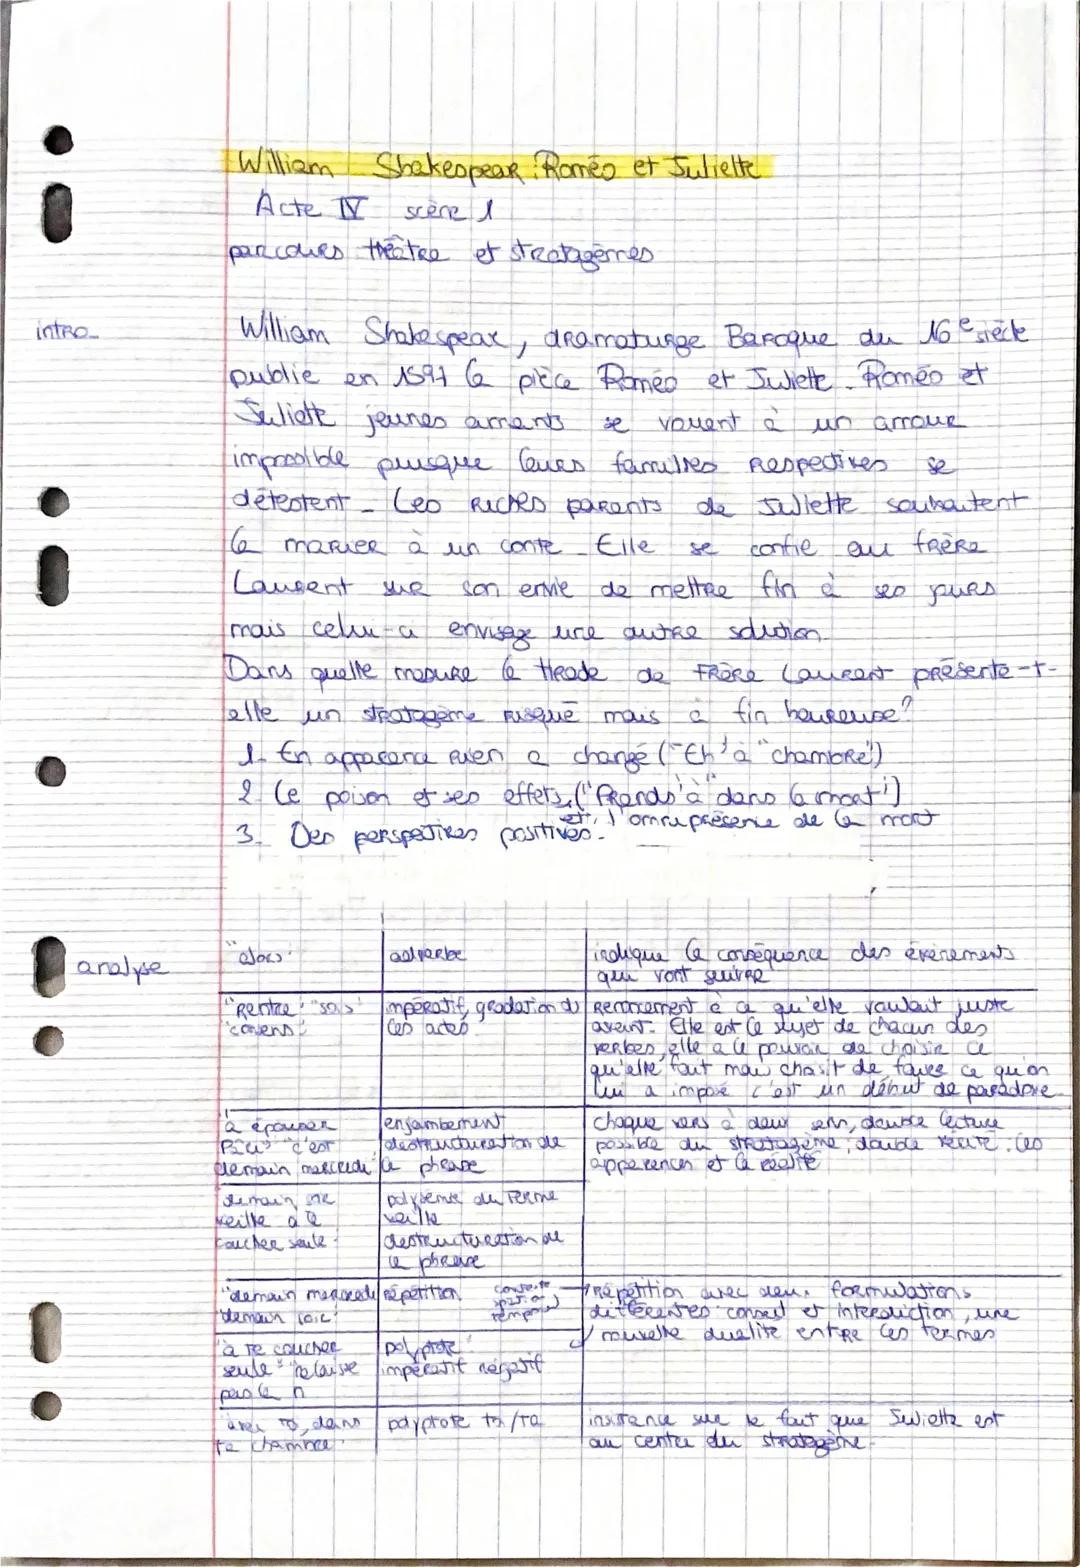 William Shakespear : Roméo et Juliette
Acte IV scène 1
parcours théâtre et stratagèmes
intro
William Shakespear, dramaturge Baroque du 16e siècle
publie en 1597 la pièce Roméo et Juliette. Roméo et
Juliette jeunes amants se vouent à un amour
impossible puisque leurs familles respectives se
détestent. Les riches parents de Juliette souhaitent
la marier à un conte. Elle se confie au frère
Laurent sur son envie de mettre fin à ses jours
mais celui-ci envisage une autre solution.
Dans quelle mesure la tirade de Frère Laurent présente-t-
elle un stratagème risqué mais à fin heureuse?
1. En apparence rien a changé ("Eh" à "chambre")
2. Le poison et ses effets, ("Prends" à "dans la mort")
et l'omniprésence de la mort
3. Des perspectives positives.
analyse
"alors" adverbe indique la conséquence des évènements
qui vont suivre
"Rentre" "sois" impératif, gradation de Renoncement à ce qu'elle voulait juste
"consens" ces actes avant. Elle est le sujet de chacun des
verbes, elle a le pouvoir de choisir ce
qu'elle fait mais choisit de faire ce qu'on
lui a imposé c'est un début de paradoxe
"à épouser enjambement chaque vers à deux sens, double lecture
"c'est destructuration de possible du stratagème, double : les
demain mercredi la phrase apparences et la réalité
demain polysémie du terme
veille à te veille
coucher seule destructuration de
la phrase
"demain mercredi répétition répétition avec deux formulations
"demain soir" différentes conseil et interdiction, une
nouvelle dualité entre ces termes
"à te coucher polyptote
seule" "ne laisse impératif négatif
pas la n
"avec toi, dans polyptote toi/ta insistance sur le fait que Juliette est
ta chambre" au centre du stratagème.